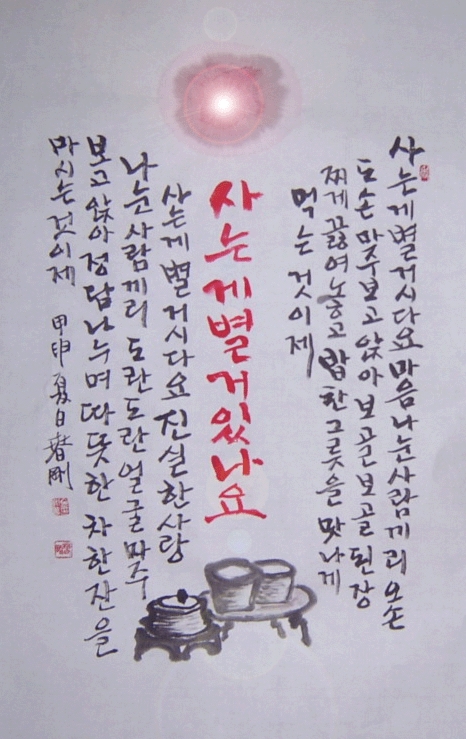 사는게별거시다요마음나눈사람께리오손
도손마주보고앉아보골보골된장
찌게끓여놓고밥한그릇을맛나게
먹는것이제
사는게별거있나요
사는게별거시다요진실한사랑
나눈사람께리도란도란얼굴마주
보고앉아정담나누며따뜻한차한잔을
마시는것이제 甲申夏日